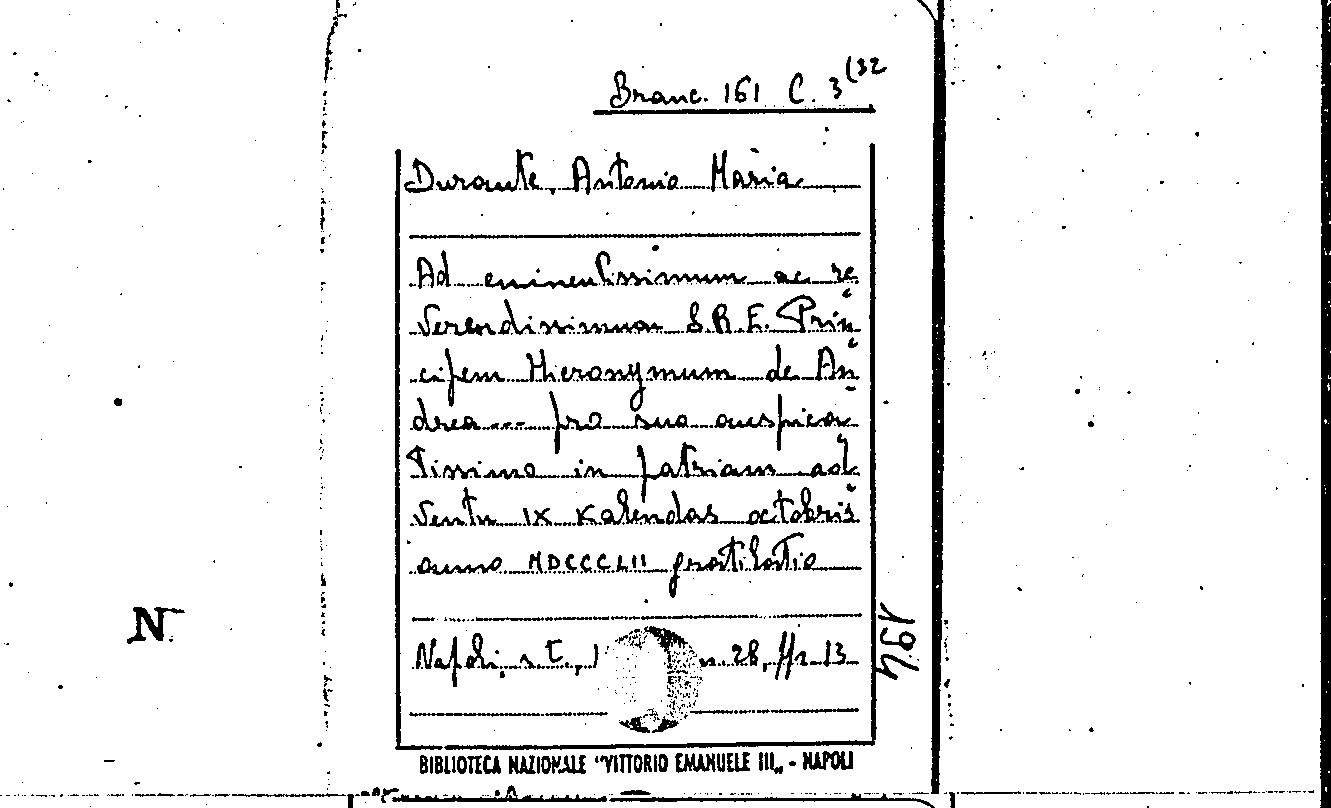 Branc. 161 C. 3(32
Durante, Antonio Maria
Ad eminentissimum ac re
verendissimum S.R.E. Prin
cipem Hieronymum de An
drea --- pro suo auspica
tissimo in patriam ad
ventu IX Kalendas octobris
anno MDCCCLII gratulatio
Napoli, s.t., 1 28, pp. 13
194
N
BIBLIOTECA NAZIONALE "VITTORIO EMANUELE III„ - NAPOLI